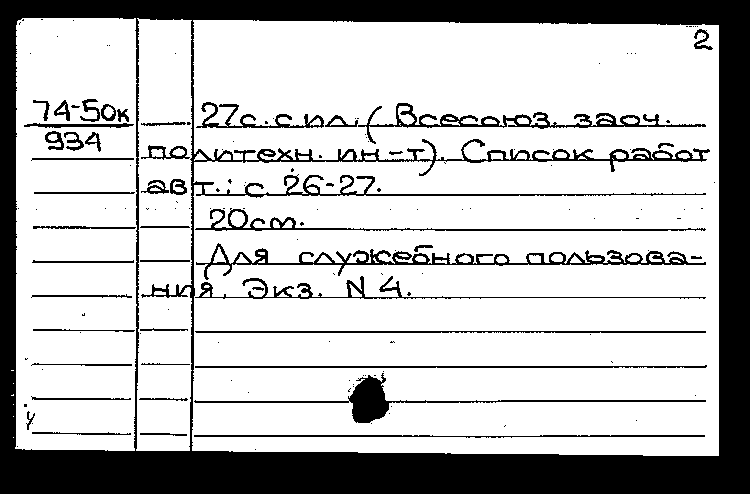 2
74-50к
934
27с. с ил. (Всесоюз. заоч.
политехн. ин-т). Список работ
авт.: с. 26-27.
20см.
Для служебного пользова-
ния. Экз. N 4.